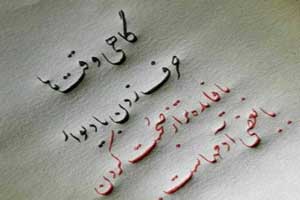 گاهی وقت ها
حرف زدن با دیوار
با فایده تر از صحبت کردن
با بعضی آدمهاست